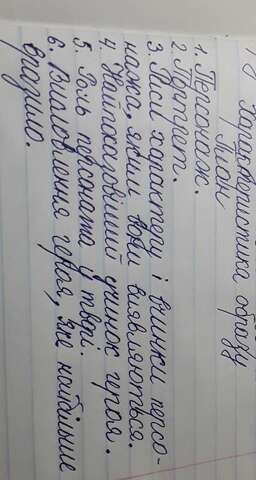 Характеристика образу
План
1. Персонаж.
2. Портрет.
3. Риси характеру і вчинки персо-
нажа, якими вони виявляються.
4. Найяскравіший вчинок героя.
5. Роль персонажа у творі.
6. Висловлення героя, яке найбільше
вразило.